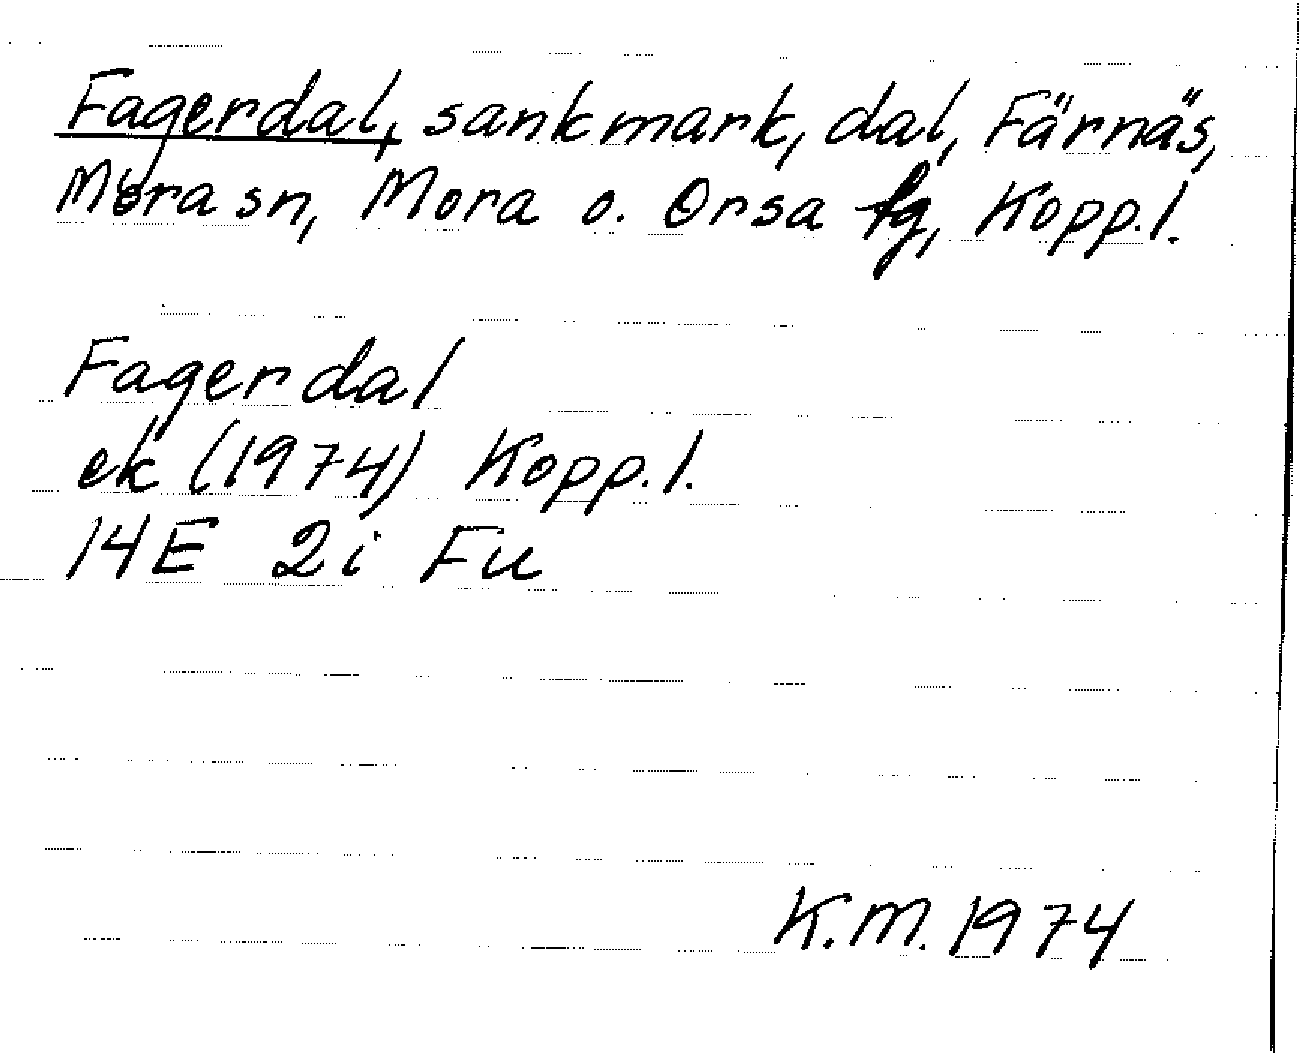 Fagerdal, sankmark, dal, Färnäs,
Mora sn, Mora o. Orsa tg, Kopp.l.
Fagerdal
ek (1974) Kopp.l.
14E 2i Fu
K.M. 1974